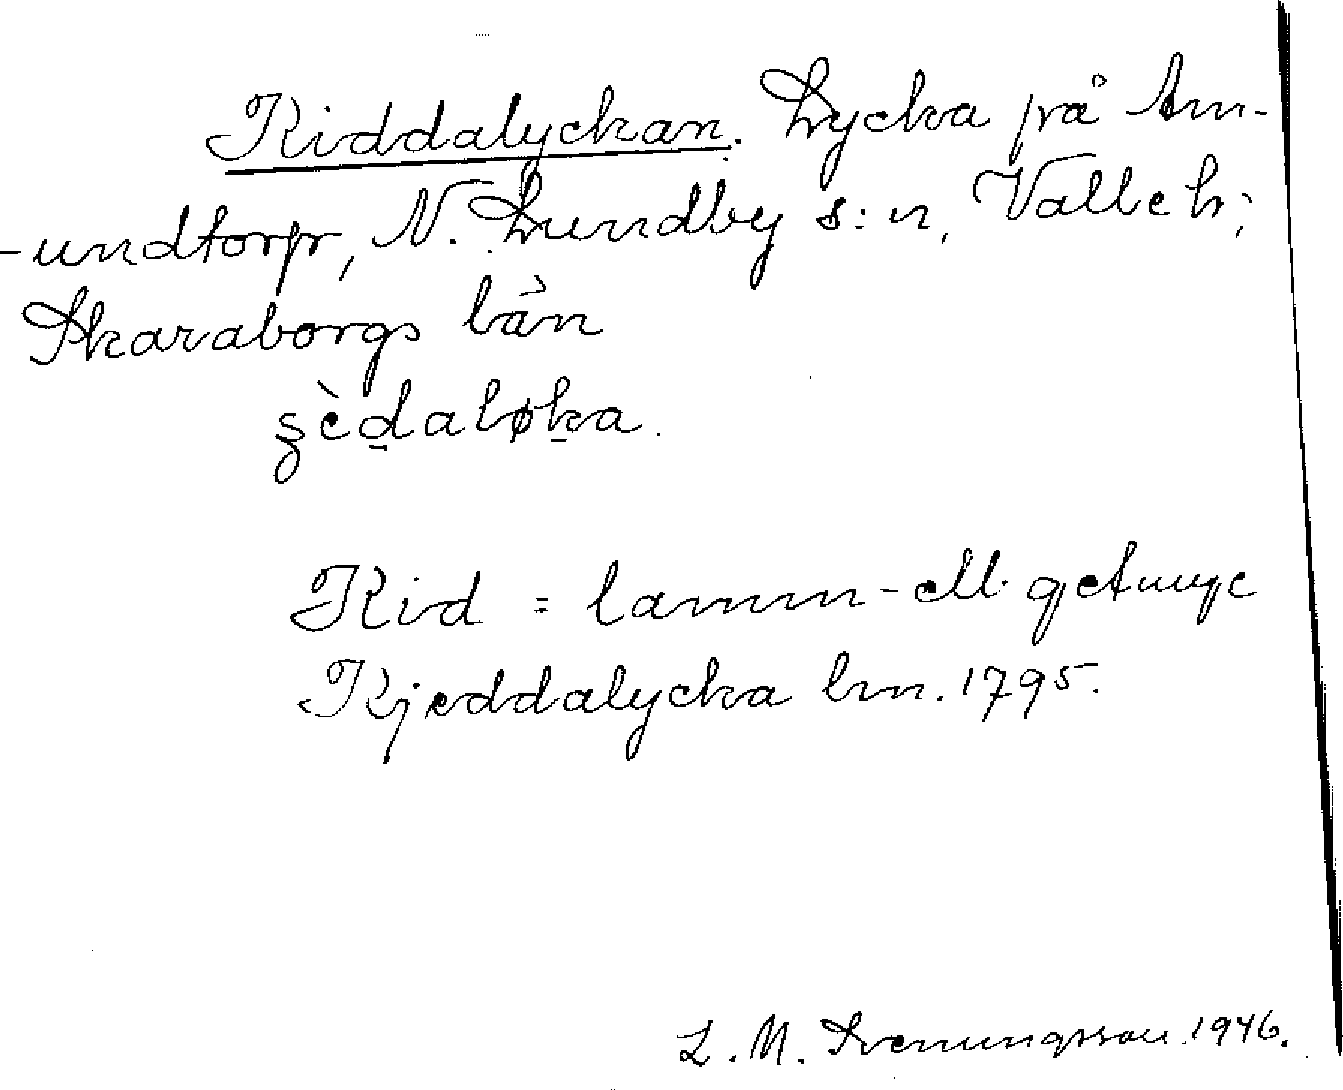 Kiddalyckan. Lycka på Äm-
-undtorp, N. Lundby s:n, Valle h;
Skaraborgs län
Kid = lamm- ell. getunge
Kjeddalycka lm. 1795.
L. M. Svenungsson 1946.